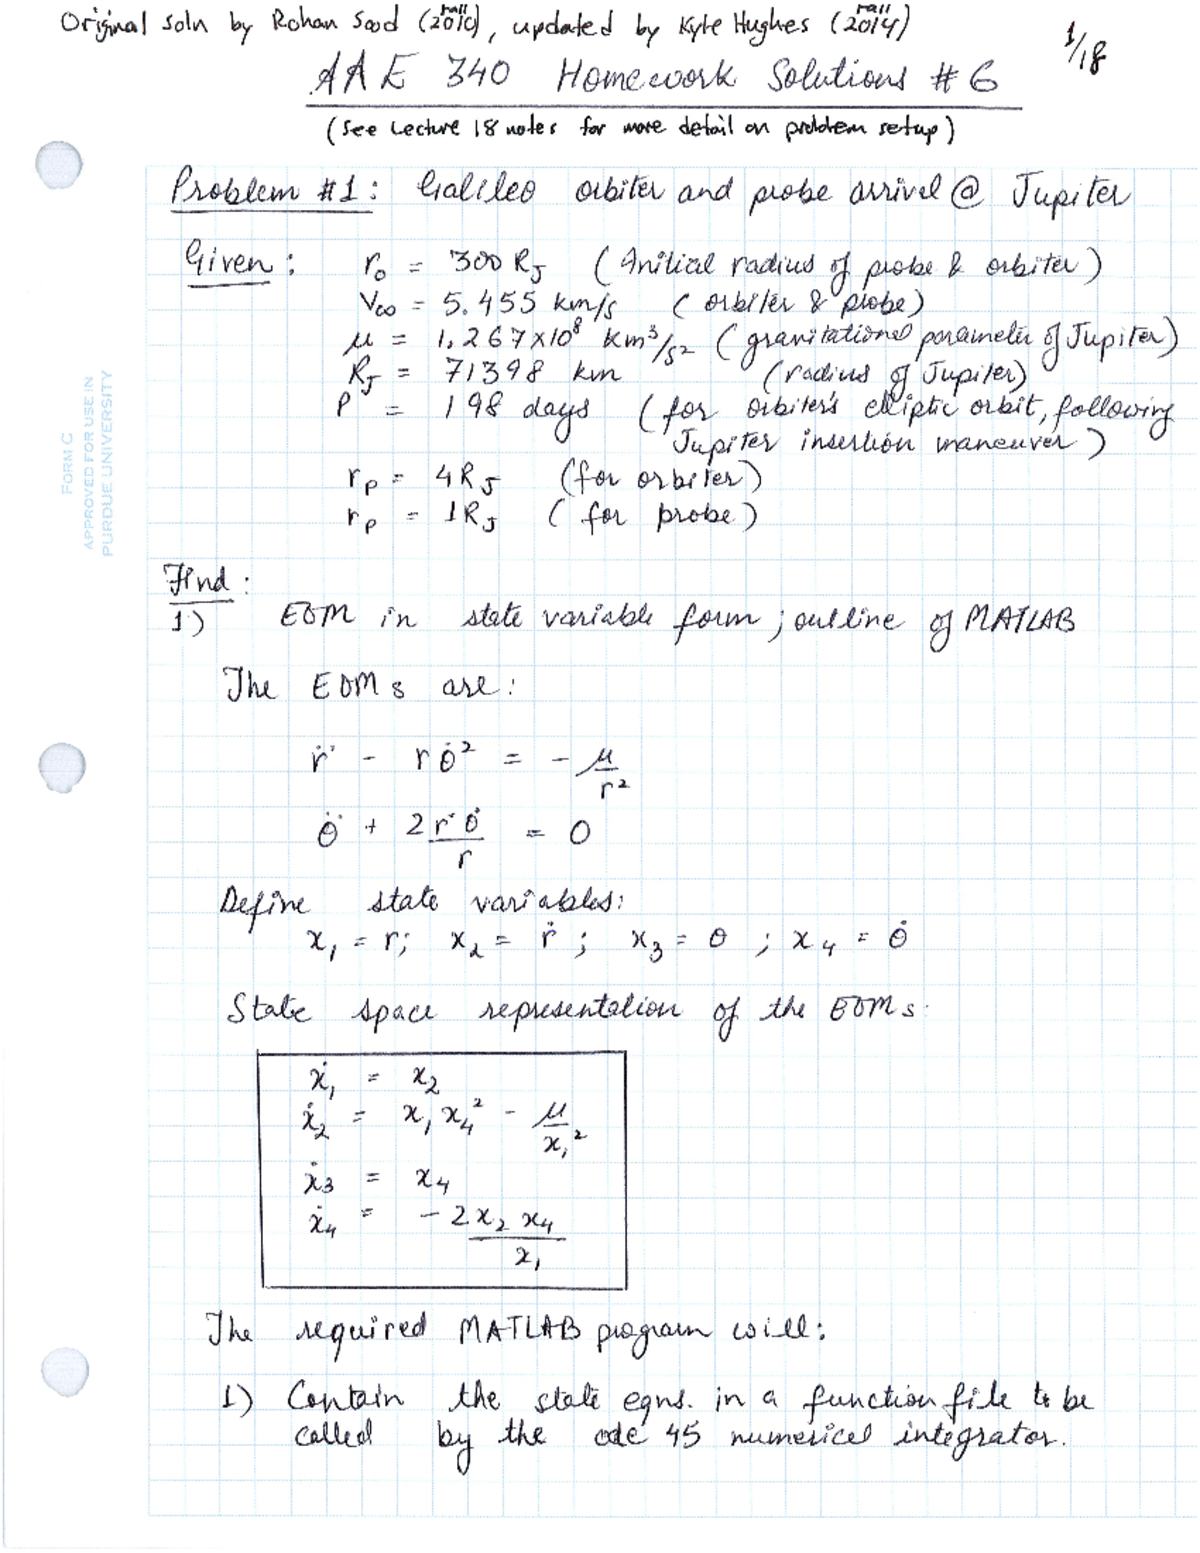 Original soln by Rohan Sood (Fall 2010), updated by Kyle Hughes (Fall 2014)
1/18
AAE 340 Homework Solutions #6
(See Lecture 18 notes for more detail on problem setup)
Problem #1: Galileo orbiter and probe arrival @ Jupiter
Given: r₀ = 300 R_J (Initial radius of probe & orbiter)
V∞ = 5.455 km/s (orbiter & probe)
μ = 1.267×10⁸ km³/s² (gravitational parameter of Jupiter)
R_J = 71398 km (radius of Jupiter)
P = 198 days (for orbiter's elliptic orbit, following
Jupiter insertion maneuver)
r_p = 4R_J (for orbiter)
r_p = 1R_J (for probe)
FORM C
APPROVED FOR USE IN
PURDUE UNIVERSITY
Find:
1) EOM in state variable form; outline of MATLAB
The EOMs are:
r̈ - rθ̇² = -μ/r²
θ̈ + 2ṙθ̇/r = 0
Define state variables:
x₁ = r; x₂ = ṙ; x₃ = θ; x₄ = θ̇
State space representation of the EOMs:
ẋ₁ = x₂
ẋ₂ = x₁x₄² - μ/x₁²
ẋ₃ = x₄
ẋ₄ = -2x₂x₄/x₁
The required MATLAB program will:
1) Contain the state eqns. in a function file to be
called by the ode 45 numerical integrator.